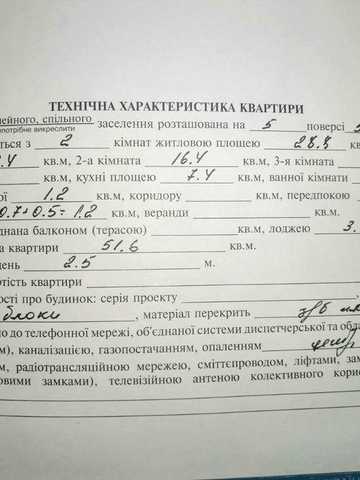 ТЕХНІЧНА ХАРАКТЕРИСТИКА КВАРТИРИ
мейного, спільного заселення розташована на 5 поверсі
потрібне викреслити
ться з 2 кімнат житловою площею 28.8 кв
.4 кв.м, 2-а кімната 16.4 кв.м, 3-я кімната
кв.м, кухні площею 7.4 кв.м, ванної кімнати
ої 1.2 кв.м, коридору кв.м, передпокою
0.7+0.5=1.2 кв.м, веранди кв.м.
днана балконом (терасою) кв.м, лоджею 3.
а квартири 51.6 кв.м.
день 2.5 м.
ртість квартири
ості про будинок: серія проекту
блоки, матеріал перекрить з/б
но до телефонної мережі, об'єднаної системи диспетчерської та обла
м), каналізацією, газопостачанням, опаленням центр
м, радіотрансляційною мережею, сміттєпроводом, ліфтами, зам
овими замками), телевізійною антеною колективного кори